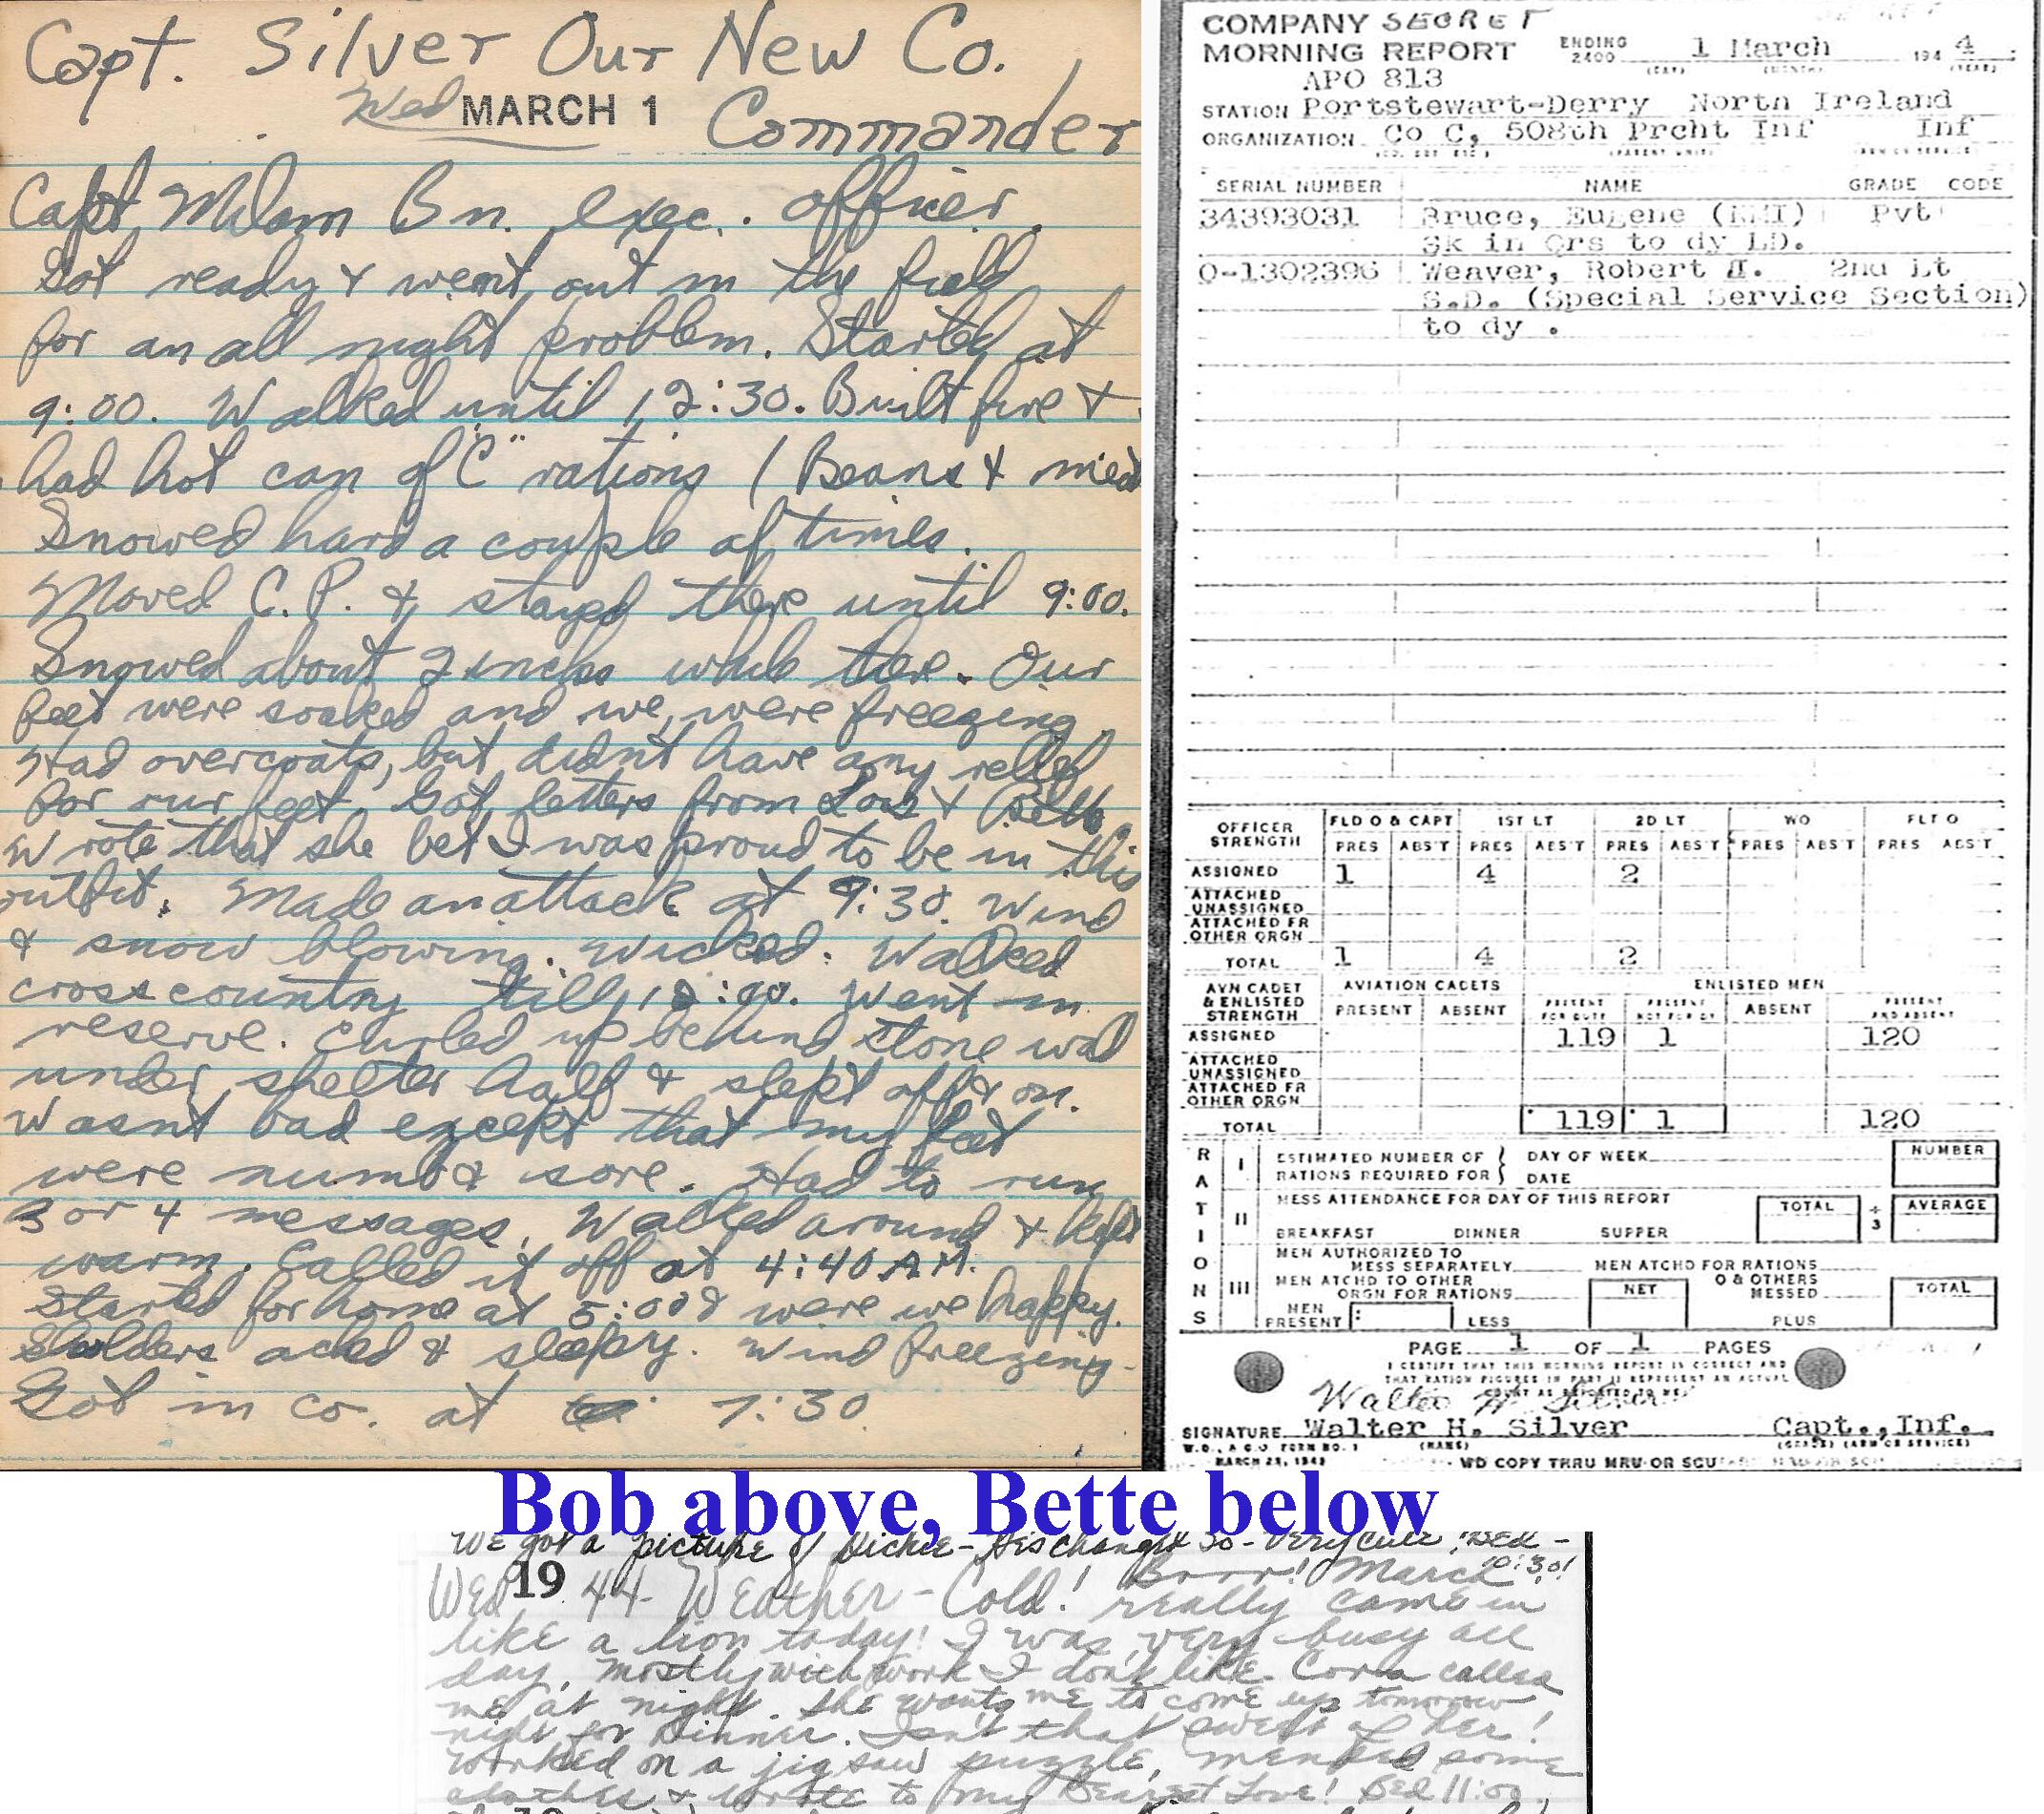 Capt. Silver Our New Co.
Wed MARCH 1 Commander
Capt Milam Bn. exec. officer.
Got ready & went out in the field
for an all night problem. Started at
9:00. Walked until 12:30. Built fire &
had hot can of "C" rations (Beans & meat
Snowed hard a couple of times.
Moved C.P. & stayed there until 9:00.
Snowed about 2 inches while there. Our
feet were soaked and we were freezing
Had overcoats, but didn't have any relief
for our feet. Got letters from Lois & Bette
Wrote that she bet I was proud to be in this
outfit. Made an attack at 9:30. Wind
& snow blowing. Wicked. Walked
cross country till 12:00. Went in
reserve. Curled up behind stone wall
under shelter half & slept off & on.
Wasn't bad except that my feet
were numb & sore. Had to run
3 or 4 messages. Walked around & kept
warm. Called it off at 4:40 A.M.
Started for home at 5:00 & were we happy.
Sholders ached & sleepy. Wind freezing.
Got in co. at 7:30
COMPANY SECRET
MORNING REPORT ENDING 2400 1 March 1944
(DAY) (MONTH) (YEAR)
APO 813
STATION Portstewart-Derry North Ireland
ORGANIZATION Co C, 508th Prcht Inf Inf
SERIAL NUMBER NAME GRADE CODE
34393031 Bruce, Eugene (NMI) Pvt
Sk in Qrs to dy LD.
O-1302396 Weaver, Robert H. 2nd Lt
S.D. (Special Service Section)
to dy .
OFFICER STRENGTH FLD O & CAPT 1ST LT 2D LT WO FLT O
PRES ABS'T PRES ABS'T PRES ABS'T PRES ABS'T PRES ABS'T
ASSIGNED 1 4 2
ATTACHED UNASSIGNED
ATTACHED FR OTHER ORGN
TOTAL 1 4 2
AVN CADET & ENLISTED STRENGTH AVIATION CADETS ENLISTED MEN
PRESENT ABSENT PRESENT FOR DUTY PRESENT NOT FOR DY ABSENT PRESENT AND ABSENT
ASSIGNED 119 1 120
ATTACHED UNASSIGNED
ATTACHED FR OTHER ORGN
TOTAL 119 1 120
RATIONS
I ESTIMATED NUMBER OF RATIONS REQUIRED FOR DAY OF WEEK DATE NUMBER
II MESS ATTENDANCE FOR DAY OF THIS REPORT TOTAL ÷ 3 AVERAGE
BREAKFAST DINNER SUPPER
III MEN AUTHORIZED TO MESS SEPARATELY MEN ATCHD FOR RATIONS
MEN ATCHD TO OTHER ORGN FOR RATIONS NET O & OTHERS MESSED TOTAL
MEN PRESENT LESS PLUS
PAGE 1 OF 1 PAGES
I CERTIFY THAT THIS MORNING REPORT IS CORRECT AND
THAT RATION FIGURES IN PART II REPRESENT AN ACTUAL
COUNT AS REPORTED TO ME
Walter H Silver
SIGNATURE Walter H. Silver Capt., Inf.
W.D., A.G.O. FORM NO. 1 (NAME) (GRADE) (ARM OR SERVICE)
MARCH 25, 1943 WD COPY THRU MRU OR SCU
Bob above, Bette below
We got a picture of Dickie - He's changed so - Very cute. Bed -
10:30!
Wed 1944 - Weather - Cold! Brrr! March
really came in
like a lion today! I was very busy all
day, mostly with work I don't like. Cora called
me at night. She wants me to come up tomorrow
night for Dinner. Isn't that sweet of her!
Worked on a jig saw puzzle, mended some
clothes & wrote to my Dearest Love! Bed 11:00.